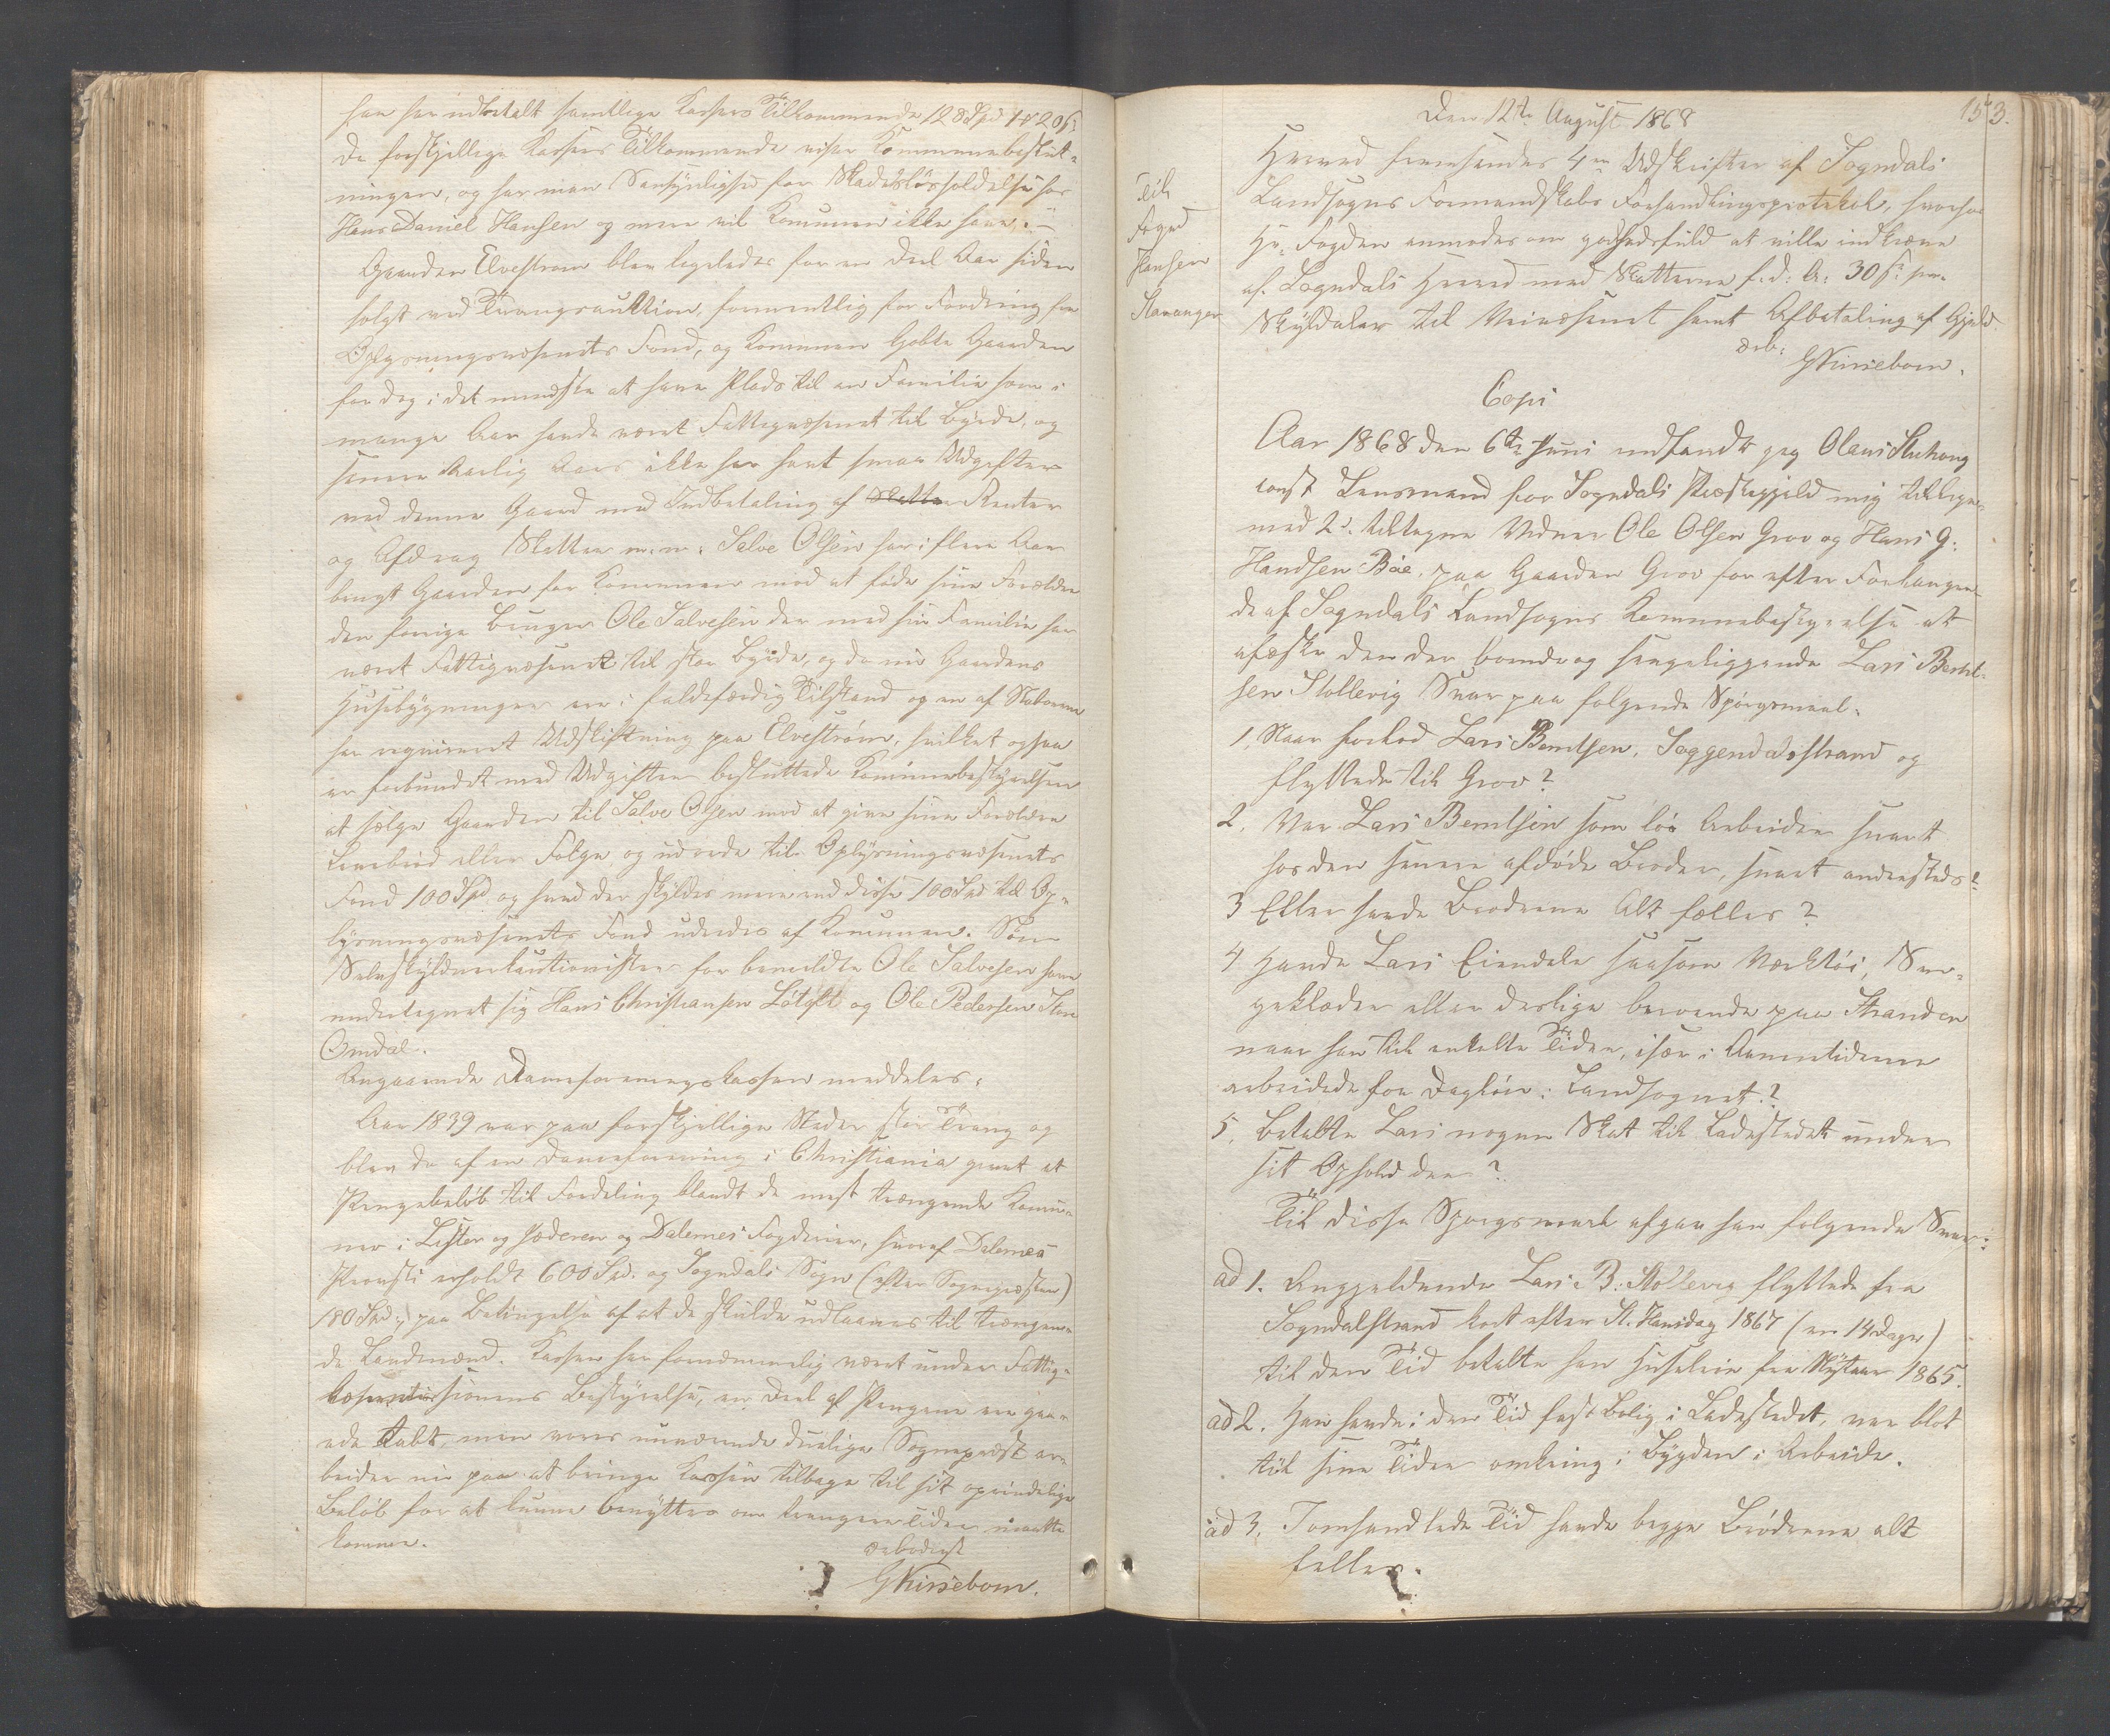 han har indbetalt samtlige Kassers Tilkommende 128 Spd 1 # 20 ß.
De forskjellige Kassers Tilkommende viser Kommunebeslut-
ninger, og har man Sansynlighed for Skadesløsholdelse hos
Hans Daniel Hansen og mere vil Komunen ikke have. —
Gaarden Elvestrøm blev ligeledes for en Deel Aar siden
solgt ved Tvangsauktion, formentlig for Fordring fra
Oplysningsvæsenets Fond, og Komunen kjøbte Gaarden
for dog i det mindste at have Plads til en Familie som i
mange Aar havde været Fattigvæsenet til Byrde, og
senere Aarlig Aars ikke har havt smaa Udgifter
ved denne Gaard med Indbetaling af Skatte Renter
og Afdrag Skatter m. m. Salve Olsen har i flere Aar
brugt Gaarden for Komunen mod at føde sine Forældre
den forrige Bruger Ole Salvesen der med sin Familie har
været Fattigvæsenet til stor Byrde, og da nu Gaardens
Husebygninger er i faldefærdig Tilstand og en af Naboerne
har requireret Udskiftning paa Elvestrøm, hvilket ogsaa
er forbundet med Udgifter besluttede Komunebestyrelsen
at sælge Gaarden til Salve Olsen mod at give sine Forældre
Levebrød eller Følge og udrede til Oplysningsvæsenets
Fond 100 Spd og hvad der skyldes mere end disse 100 Spd til Op-
lysningsvæsenets Fond udredes af Komunen. Som
Selvskyldnerkautionister for bemeldte Ole Salvesen have
undertegnet sig Hans Christiansen Løtoft og Ole Pedersen Store
Omdal.
Angaaende Dameforeningskassen meddeles:
Aar 1839 var paa forskjellige Steder stor Trang og
blev da af en Dameforening i Christiania givet et
Pengebeløb til Fordeling blandt de mest trængende Komu-
ner i Lister og Jæderen og Dalernes Fogderier, hvoraf Dalernes
Provsti erholdt 600 Spd. og Sogndals Sogn (efter Sognepræsten)
180 Spd., paa Betingelse af at de skulde udlaanes til trængen-
de Landmænd. Kassen har fornemmelig været under Fattig-
kommissionens Bestyrelse, en Deel af Pengene ere gaa-
ede tabt, men vores nuværende duelige Sognepræst ar-
beider nu paa at bringe Kassen tilbage til sit oprindelige
Beløb for at kunne benyttes om trangere Tider maatte
komme.
ærbødigst
G Kirsebom.
153.
Den 12te August 1868
Til
Foged
Hansen
Stavanger
Herved fremsendes 4re Udskrifter af Sogndals
Landsogns Formandskabs Forhandlingsprotokol, hvorhos
Hr. Fogden anmodes om godhedsfuld at ville indkræve
af Sogndals Herred med Skatterne f. d. A. 30 ß. pr.
Skyldaler til Veivæsenet samt Afbetaling af Gjeld.
ærb:
G Kirsebom.
Copi
Aar 1868 den 6te Juni indfandt jeg Olaus Stuhoug
const Lensmand for Sogndals Præstegjeld mig tilligen
med 2. tiltagne Vidner Ole Olsen Grov og Hans G.
Handsen Bøe, paa Gaarden Grov for efter Forlangen-
de af Sogndals Landsogns Komunebestyrelse at
afæske den der boende og sengeliggende Lars Berent-
sen Stollevig Svar paa følgende Spørgsmaal.
1. Naar forlod Lars Berntsen, Soggendalsstrand og
flyttede til Grov?
2. Var Lars Berntsen som løs Arbeider snart
hos den senere afdøde Broder, snart andensteds?
3 Eller havde Brødrene Alt fælles?
4 Havde Lars Eiendele saasom Værktøi, Sen-
geklæder eller deslige beroende paa Stranden
naar han til enkelte Tider, især i Aannetiderne
arbeidede for Dagløn i Landsognet?
5. Betalte Lars nogen Skat til Ladestedet under
sit Ophold der?
Til disse Spørgsmaal afgav han følgende Svar:
ad 1. Angjeldende Lars B. Stollevig flyttede fra
Sogndalstrand kort efter St. Hansdag 1867 (en 14 Dage)
til den Tid betalte han Husleie fra Nytaar 1865.
ad 2. Han havde i den Tid fast Bolig i Ladestedet, var blot
til sine Tider omkring i Bygden i Arbeide.
ad 3. I omhandlede Tid havde begge Brødrene alt
felles.